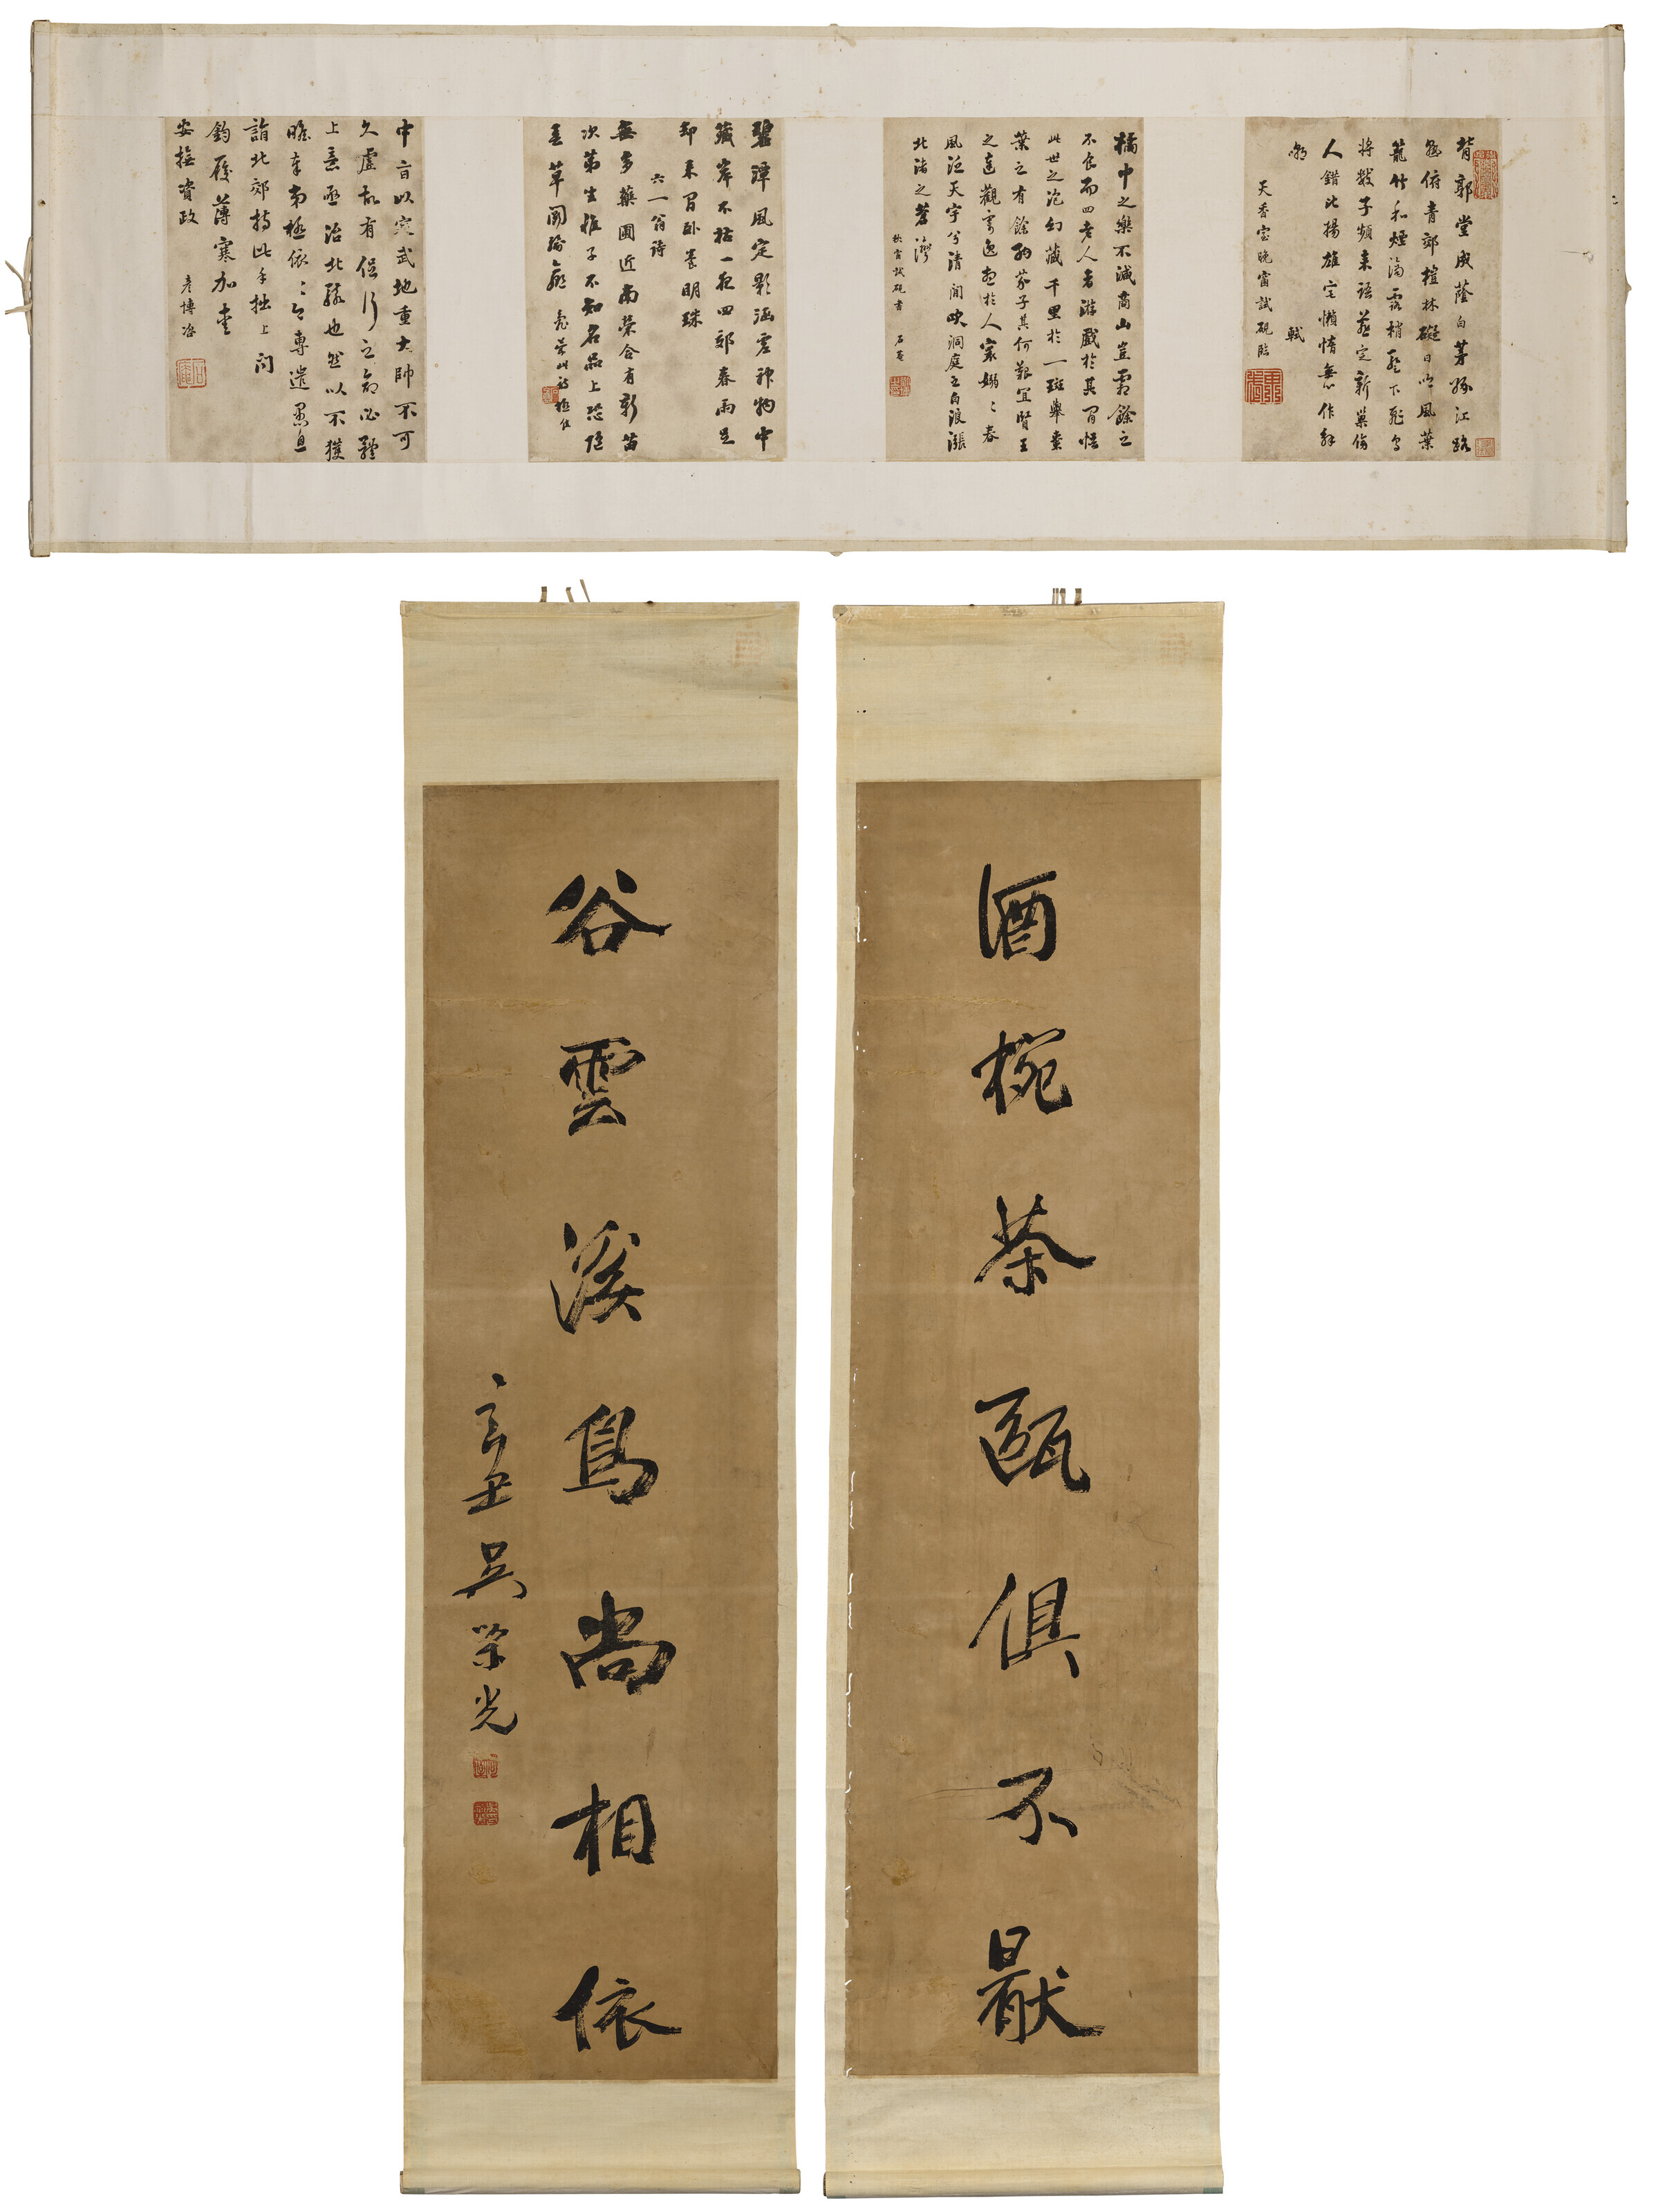 背郭堂成蔭白茅緣江路
熟俯青郊榿林礙日吟風葉
籠竹和煙滴露梢暫下飛烏
將數子頻來語燕定新巢傍
人錯比揚雄宅懶惰無心作解
嘲 軾
天香室晚窗試硯臨
橘中之樂不減商山豈霜餘之
不食而四老人者游戲於其間悟
此世之泡幻藏千里於一斑舉棗
葉之有餘納芥子其何艱宜賢王
之達觀寄逸想於人寰嫋〻春
風泛天宇兮清閒吹洞庭之白浪漲
北渚之蒼灣
秋窗試硯書 石菴
碧潭風定影涵虛神物中
藏岸不枯一夜四郊春雨足
卻來閒臥養明珠
六一翁詩
無多藥圃近南榮合有新苗
次第生稚子不知名品上恐隨
春草鬭輸贏
中旨以定武地重大帥不可
久虛故有促行之命必難
上意亟治北轅也然以不獲
瞻奉南極依〻今專遣愚息
詣北郊持此手拙上問
鈞履薄寒加重
安撫資政 彥博啓
酒椀茶甌俱不厭
谷雲溪鳥尚相依
辛丑吳榮光